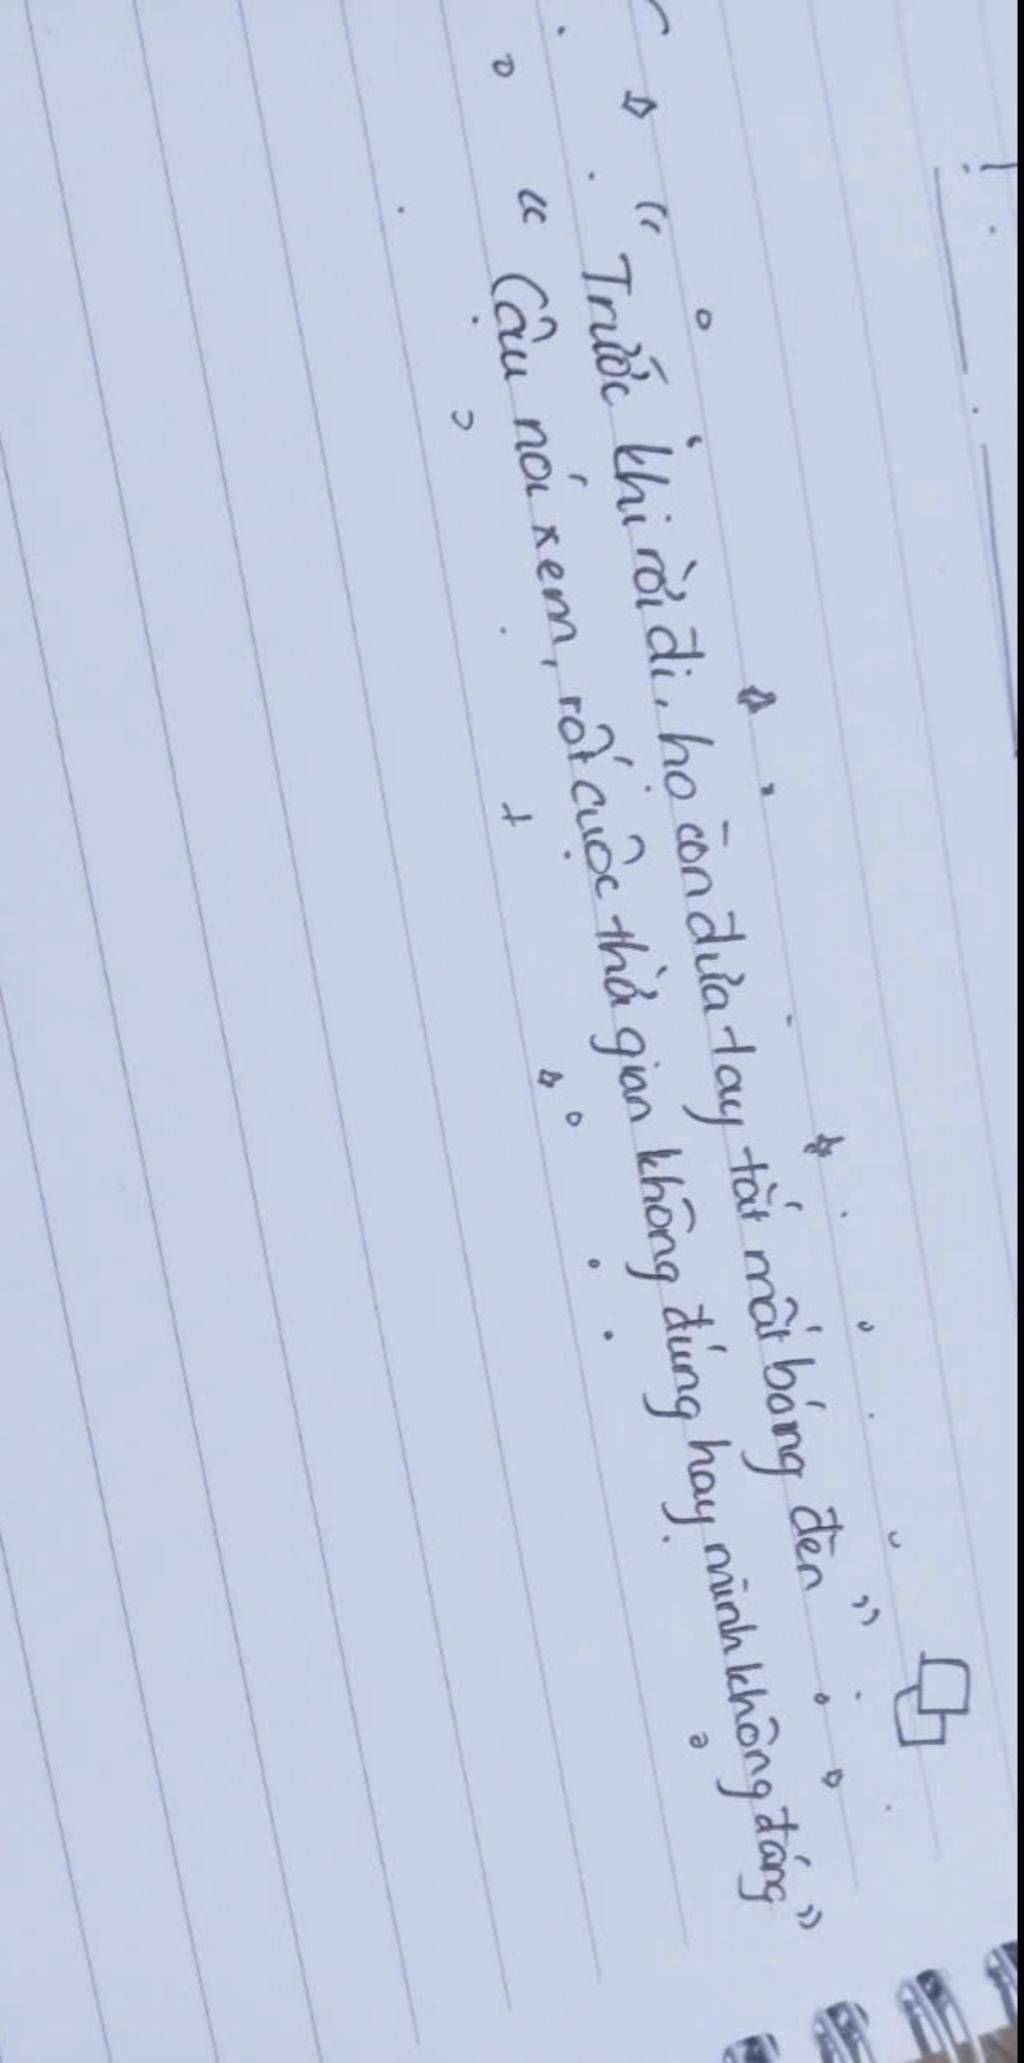 " Trước khi rời đi, họ còn đưa tay tắt mất bóng đèn "
" Cậu nói xem, rốt cuộc thờ gian không đúng hay mình không đáng "